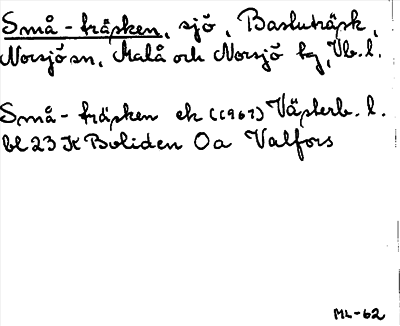 Små-träsken, sjö, Basluträsk,
Norsjö sn, Malå och Norsjö kg, Vb. l.
Små-träsken ek (1967) Västerb. l.
bl 23 K Boliden Oa Valfors
ML-62